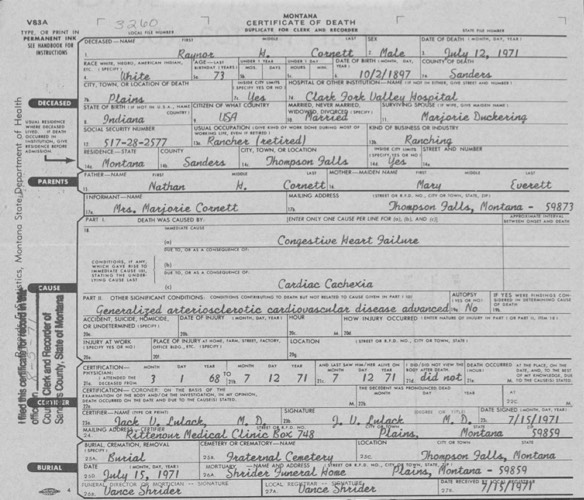 VS3A
3260
LOCAL FILE NUMBER
MONTANA
CERTIFICATE OF DEATH
DUPLICATE FOR CLERK AND RECORDER
STATE FILE NUMBER
TYPE, OR PRINT IN
PERMANENT INK
SEE HANDBOOK FOR
INSTRUCTIONS
DECEASED—NAME FIRST MIDDLE LAST SEX DATE OF DEATH (MONTH, DAY, YEAR)
Raynor H. Cornett Male July 12, 1971
RACE WHITE, NEGRO, AMERICAN INDIAN, ETC. (SPECIFY) AGE—LAST BIRTHDAY (YEARS) UNDER 1 YEAR UNDER 1 DAY DATE OF BIRTH (MONTH, DAY, YEAR) COUNTY OF DEATH
White 73 10/2/1897 Sanders
CITY, TOWN, OR LOCATION OF DEATH INSIDE CITY LIMITS (SPECIFY YES OR NO) HOSPITAL OR OTHER INSTITUTION—NAME (IF NOT IN EITHER, GIVE STREET AND NUMBER)
Plains Yes Clark Fork Valley Hospital
DECEASED
STATE OF BIRTH (IF NOT IN U.S.A., NAME COUNTRY) CITIZEN OF WHAT COUNTRY MARRIED, NEVER MARRIED, WIDOWED, DIVORCED (SPECIFY) SURVIVING SPOUSE (IF WIFE, GIVE MAIDEN NAME)
Indiana USA Married Marjorie Duckering
USUAL RESIDENCE WHERE DECEASED LIVED. IF DEATH OCCURRED IN INSTITUTION, GIVE RESIDENCE BEFORE ADMISSION.
SOCIAL SECURITY NUMBER USUAL OCCUPATION (GIVE KIND OF WORK DONE DURING MOST OF WORKING LIFE, EVEN IF RETIRED) KIND OF BUSINESS OR INDUSTRY
517-28-2577 Rancher (retired) Ranching
RESIDENCE—STATE COUNTY CITY, TOWN, OR LOCATION INSIDE CITY LIMITS (SPECIFY YES OR NO) STREET AND NUMBER
Montana Sanders Thompson Falls Yes
PARENTS
FATHER—NAME FIRST MIDDLE LAST MOTHER—MAIDEN NAME FIRST MIDDLE LAST
Nathan H. Cornett Mary Everett
INFORMANT—NAME MAILING ADDRESS (STREET OR R.F.D. NO., CITY OR TOWN, STATE, ZIP)
Mrs. Marjorie Cornett Thompson Falls, Montana - 59873
PART I. DEATH WAS CAUSED BY: ENTER ONLY ONE CAUSE PER LINE FOR (a), (b), AND (c) APPROXIMATE INTERVAL BETWEEN ONSET AND DEATH
IMMEDIATE CAUSE
(a) Congestive Heart Failure
CONDITIONS, IF ANY, WHICH GAVE RISE TO IMMEDIATE CAUSE (a), STATING THE UNDERLYING CAUSE LAST
DUE TO, OR AS A CONSEQUENCE OF:
(b)
DUE TO, OR AS A CONSEQUENCE OF:
(c) Cardiac Cachexia
CAUSE
PART II. OTHER SIGNIFICANT CONDITIONS: CONDITIONS CONTRIBUTING TO DEATH BUT NOT RELATED TO CAUSE GIVEN IN PART I (a) AUTOPSY (YES OR NO) IF YES WERE FINDINGS CONSIDERED IN DETERMINING CAUSE OF DEATH
Generalized arteriosclerotic cardiovascular disease advanced No
ACCIDENT, SUICIDE, HOMICIDE, OR UNDETERMINED (SPECIFY) DATE OF INJURY (MONTH, DAY, YEAR) HOUR HOW INJURY OCCURRED (ENTER NATURE OF INJURY IN PART I OR PART II, ITEM 18)
INJURY AT WORK (SPECIFY YES OR NO) PLACE OF INJURY AT HOME, FARM, STREET, FACTORY, OFFICE BLDG., ETC. (SPECIFY) LOCATION (STREET OR R.F.D. NO., CITY OR TOWN, STATE)
CERTIFICATION—PHYSICIAN: I ATTENDED THE DECEASED FROM MONTH DAY YEAR TO MONTH DAY YEAR AND LAST SAW HIM/HER ALIVE ON MONTH DAY YEAR I DID/DID NOT VIEW THE BODY AFTER DEATH. DEATH OCCURRED
3 1 68 TO 7 12 71 7 12 71 did not
CERTIFIER
CERTIFICATION—CORONER: ON THE BASIS OF THE EXAMINATION OF THE BODY AND/OR THE INVESTIGATION, IN MY OPINION, DEATH OCCURRED ON THE DATE AND DUE TO THE CAUSE(S) STATED.
CERTIFIER—NAME (TYPE OR PRINT) SIGNATURE DEGREE OR TITLE DATE SIGNED (MONTH, DAY, YEAR)
Jack U. Lulack, M. D. J. U. Lulack M. D. 7/15/1971
MAILING ADDRESS—CERTIFIER STREET OR R.F.D. NO. CITY OR TOWN STATE ZIP
Rittenour Medical Clinic Box 748 Plains, Montana 59859
BURIAL, CREMATION, REMOVAL (SPECIFY) CEMETERY OR CREMATORY—NAME LOCATION CITY OR TOWN STATE
Burial Fraternal Cemetery Thompson Falls, Montana
BURIAL
DATE (MONTH, DAY, YEAR) MORTUARY—NAME AND ADDRESS (STREET OR R.F.D. NO., CITY OR TOWN, STATE, ZIP)
July 15, 1971 Shrider Funeral Home Plains, Montana - 59859
FUNERAL DIRECTOR OR MORTICIAN—SIGNATURE LOCAL REGISTRAR—SIGNATURE DATE RECEIVED BY LOCAL REGISTRAR
Vance Shrider Vance Shrider 7/15/1971
Montana State Department of Health
I filed this certificate for record in this
office on 8-5-71
County Clerk and Recorder of
Sanders County, State of Montana